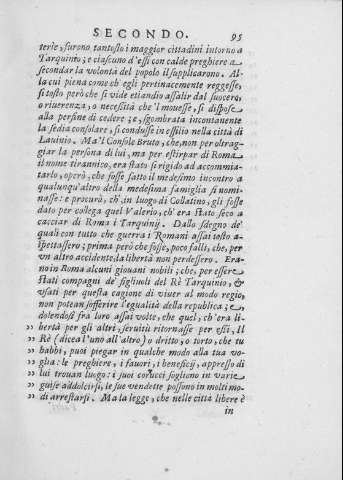 SECONDO. 95
terſe, furono tantoſto i maggior cittadini intorno a
Tarquinio; e ciaſcuno d'eſsi con calde preghiere a
ſecondar la volontà del popolo il ſupplicarono. Al-
la cui piena come ch'egli pertinacemente reggeſſe,
ſi toſto però che ſi vide etiandio aſſalir dal ſuocero,
o riuerenza, o neceſsità che'l moueſſe, ſi diſpoſe
alla perfine di cedere; e, ſgombrata incontanente
la ſedia conſolare, ſi conduſſe in eſsilio nella città di
Lauinio. Ma'l Conſole Bruto, che, non per oltrag-
giar la perſona di lui, ma per eſtirpar di Roma
il nome tirannico, era ſtato ſi rigido ad accommia-
tarlo, operò, che foſſe fatto il medeſimo incontro a
qualunqu'altro della medeſima famiglia ſi nomi-
naſſe: e procurò, ch'in luogo di Collatino, gli foſſe
dato per collega quel Valerio, ch'era ſtato ſeco a
cacciar di Roma i Tarquinij. Dallo ſdegno de'
quali con tutto che guerra i Romani aſſai toſto a-
ſpettaſſero; prima però che foſſe, poco falli, che, per
vn altro accidente, la libertà non perdeſſero. Era-
no in Roma alcuni giouani nobili; che, per eſſere
ſtati compagni de' figliuoli del Rè Tarquinio, &
vſati per queſta cagione di viuer al modo regio,
non potean ſofferire l'egualità della republica; e,
dolendoſi fra loro aſſai volte, che quel, ch'era li-
bertà per gli altri, ſeruitù ritornaſſe per eſsi, Il
Rè (dicea l'uno all'altro) o dritto, o torto, che tu
,, habbi, puoi piegar in qualche modo alla tua vo-
,, glia: le preghiere, i fauori, i beneficij, appreſſo di
,, lui trouan luogo: i ſuoi corucci ſogliono in varie
,, guiſe addolcirſi, le ſue vendette poſſono in molti mo-
,, di arreſtarſi. Ma la legge, che nelle città libere è
in